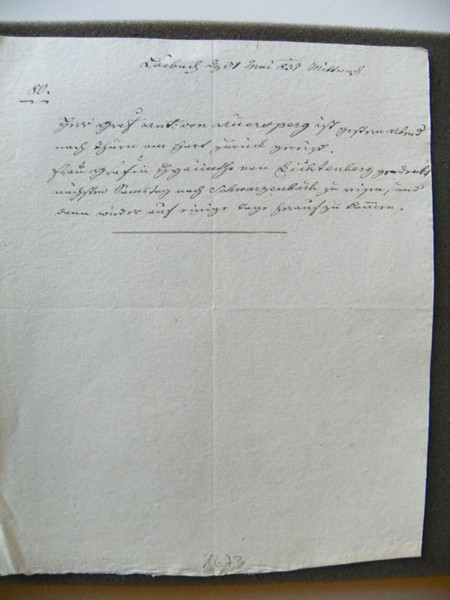 Laibach den 31 Mai 837 Mittwoch
80.
Herr Graf Ant: von Auersperg ist gestern Abend
nach Thurn am Hart zurück gereist.
Frau Gräfin Hyacinthe von Lichtenberg gedenkt
nächsten Samstag nach Schwarzenbach zu reisen, und
dann wieder auf einige Tage herauf zu kommen.
1673